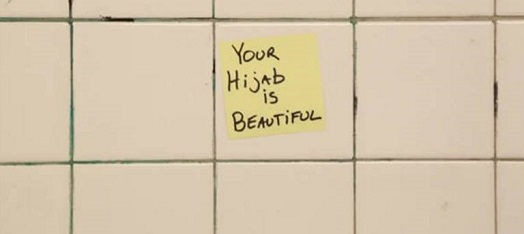 YOUR
HijAb
is
BEAUTiFUL